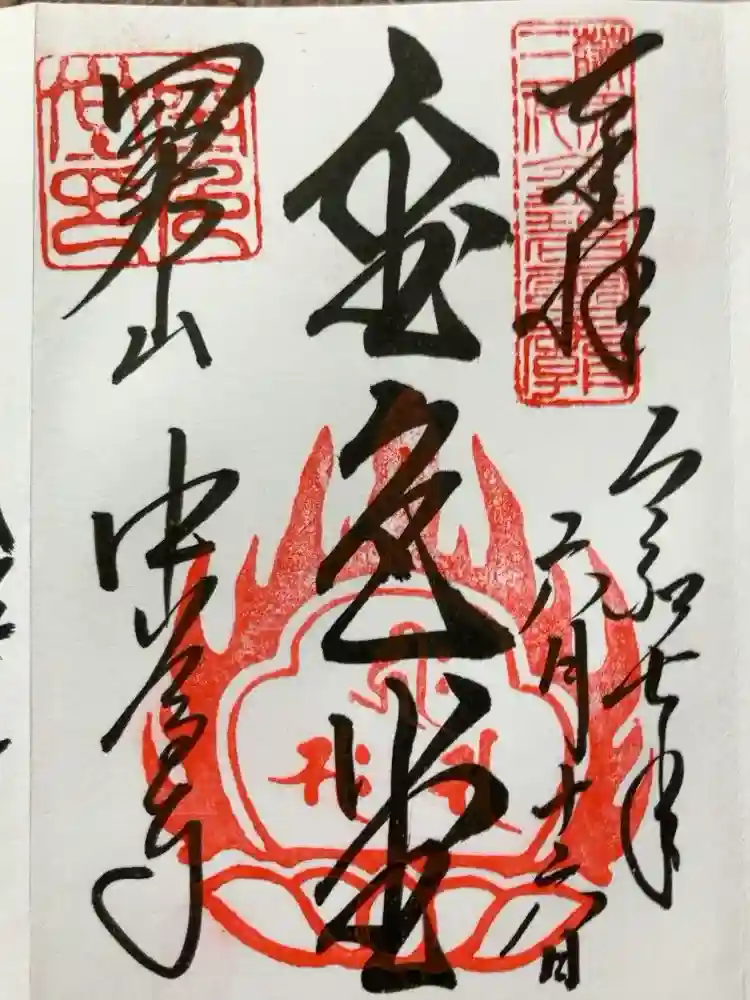 奉拝
令和七年
六月十六日
金色堂
關山
中尊寺